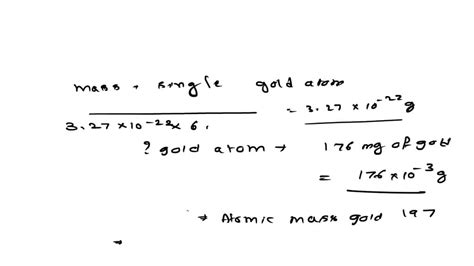 mass . single gold atom
= 3.27 × 10⁻²² g
3.27 × 10⁻²² × 6.
? gold atom → 176 mg of gold
= 176 × 10⁻³ g
→ Atomic mass gold 197
→